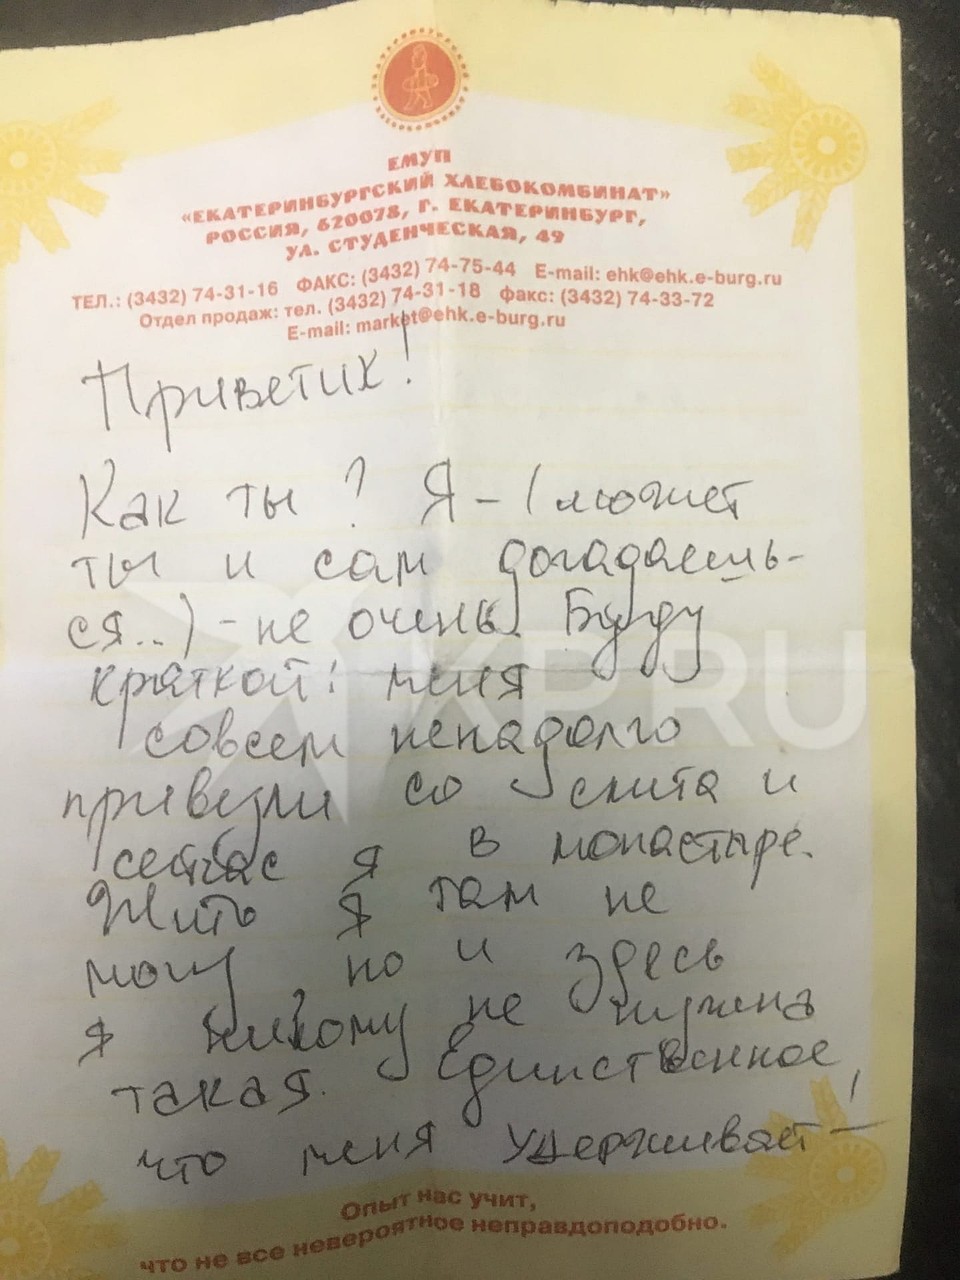 ЕМУП
«ЕКАТЕРИНБУРГСКИЙ ХЛЕБОКОМБИНАТ»
РОССИЯ, 620078, Г. ЕКАТЕРИНБУРГ,
УЛ. СТУДЕНЧЕСКАЯ, 49
ТЕЛ.: (3432) 74-31-16 ФАКС: (3432) 74-75-44 E-mail: ehk@ehk.e-burg.ru
Отдел продаж: тел. (3432) 74-31-18 Факс: (3432) 74-33-72
E-mail: market@ehk.e-burg.ru
Приветик!
Как ты? Я – (может
ты и сам догадаешь-
ся..) – не очень. Буду
краткой: меня
совсем ненадолго
привезли со скита и
сейчас я в монастыре.
Жить я там не
могу но и здесь
я никому не нужна
такая. Единственное,
что меня удерживает –
KP.RU
Опыт нас учит,
что не все невероятное неправдоподобно.